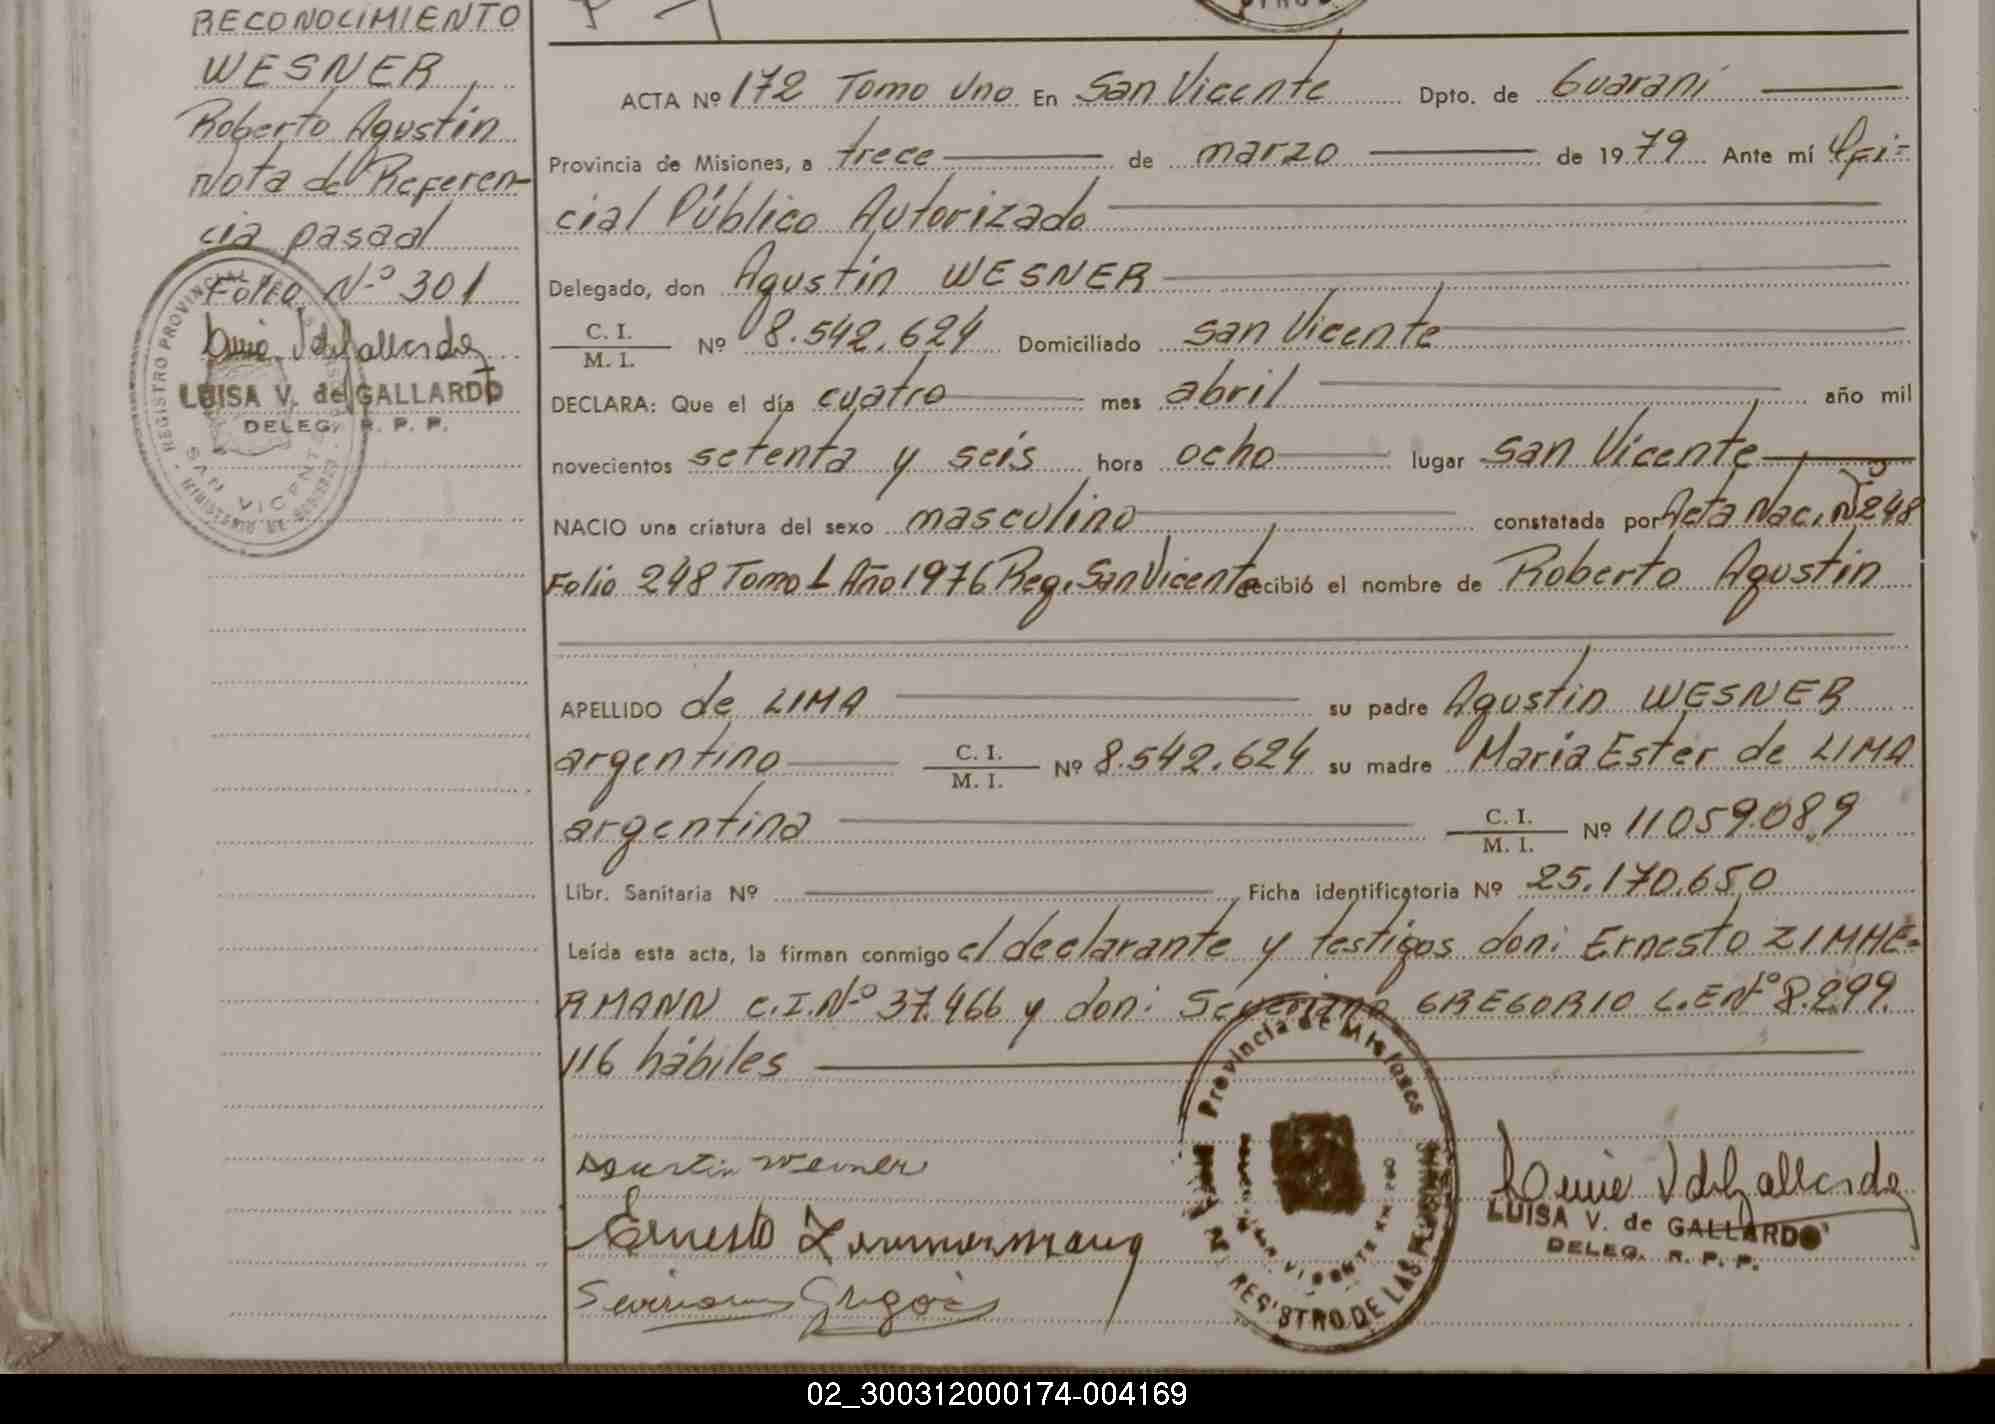 RECONOCIMIENTO
WESNER
Roberto Agustin
Nota de Referen-
cia pasad
Folio Nº 301
LUISA V. de GALLARDO
DELEG. R. P. P.
REGISTRO PROVINCIAL
SAN VICENTE
MINISTERIO DE
ACTA Nº 172 Tomo Uno En San Vicente Dpto. de Guaraní
Provincia de Misiones, a trece de marzo de 1979 Ante mí Ofi-
cial Público Autorizado
Delegado, don Agustin WESNER
C. I.
M. I. Nº 8.542.624 Domiciliado San Vicente
DECLARA: Que el día cuatro mes abril año mil
novecientos setenta y seis hora ocho lugar San Vicente
NACIO una criatura del sexo masculino constatada por Acta Nac. Nº 248
Folio 248 Tomo I Año 1976 Reg. San Vicente recibió el nombre de Roberto Agustin
APELLIDO de LIMA su padre Agustin WESNER
argentino C. I. M. I. Nº 8.542.624 su madre Maria Ester de LIMA
argentina C. I. M. I. Nº 11059.089
Libr. Sanitaria Nº Ficha identificatoria Nº 25.170.650
Leída esta acta, la firman conmigo el declarante y testigos don: Ernesto ZIMME-
RMANN C.I.Nº 37.466 y don: Severiano GREGORIO L.E Nº 8.299.
116 hábiles
Agustin Wesner
Ernesto Zimmermann
Provincia de Misiones
REGISTRO DE LAS PERSONAS
LUISA V. de GALLARDO
DELEG. R. P. P.
02_300312000174-004169